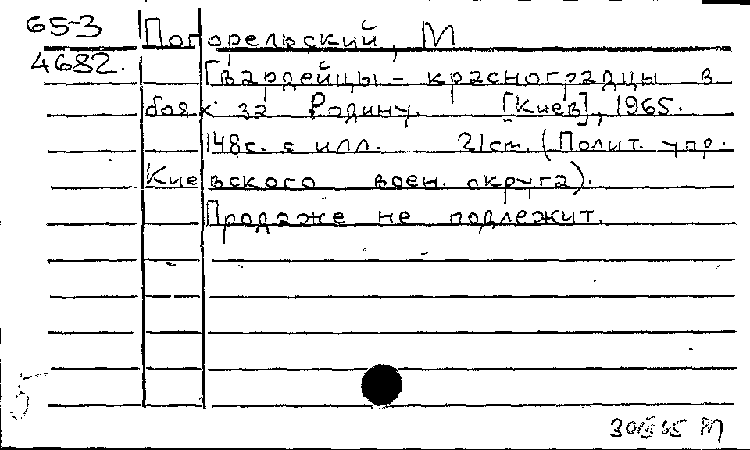 65-3 Погорельский, М
4682. Гвардейцы - красноградцы в
боях за Родину. [Киев], 1965.
148с. с илл. 21см. (Полит. упр.
Киевского воен. округа).
Продаже не подлежит.
5